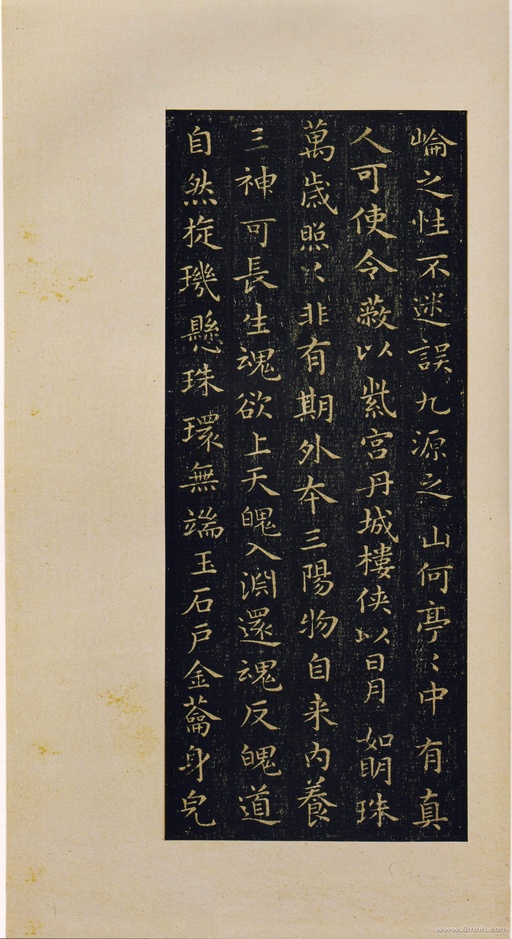 崘之性不迷誤九源之山何亭〻中有真
人可使令蔽以紫宮丹城樓俠以日月如明珠
萬歲照〻非有期外夲三陽物自来内養
三神可長生魂欲上天魄入淵還魂反魄道
自然旋璣懸珠環無端玉石戶金籥身